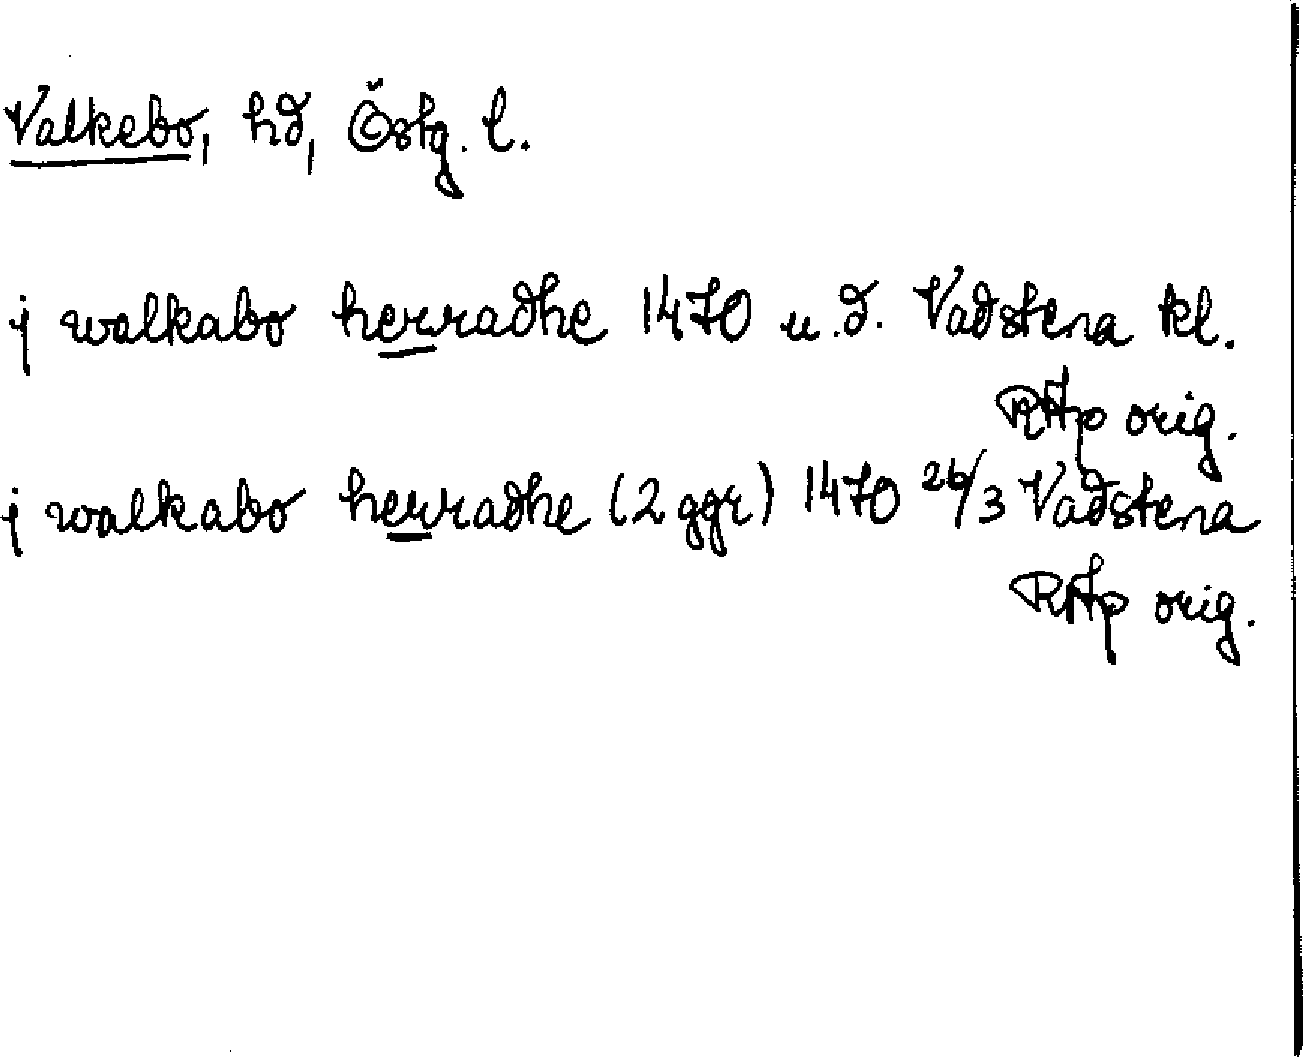 Valkebo, hd, Östg. l.
j walkabo herradhe 1470 u.d. Vadstena kl.
RAp orig.
j walkabo herradhe (2 ggr) 1470 26/3 Vadstena
RAp orig.